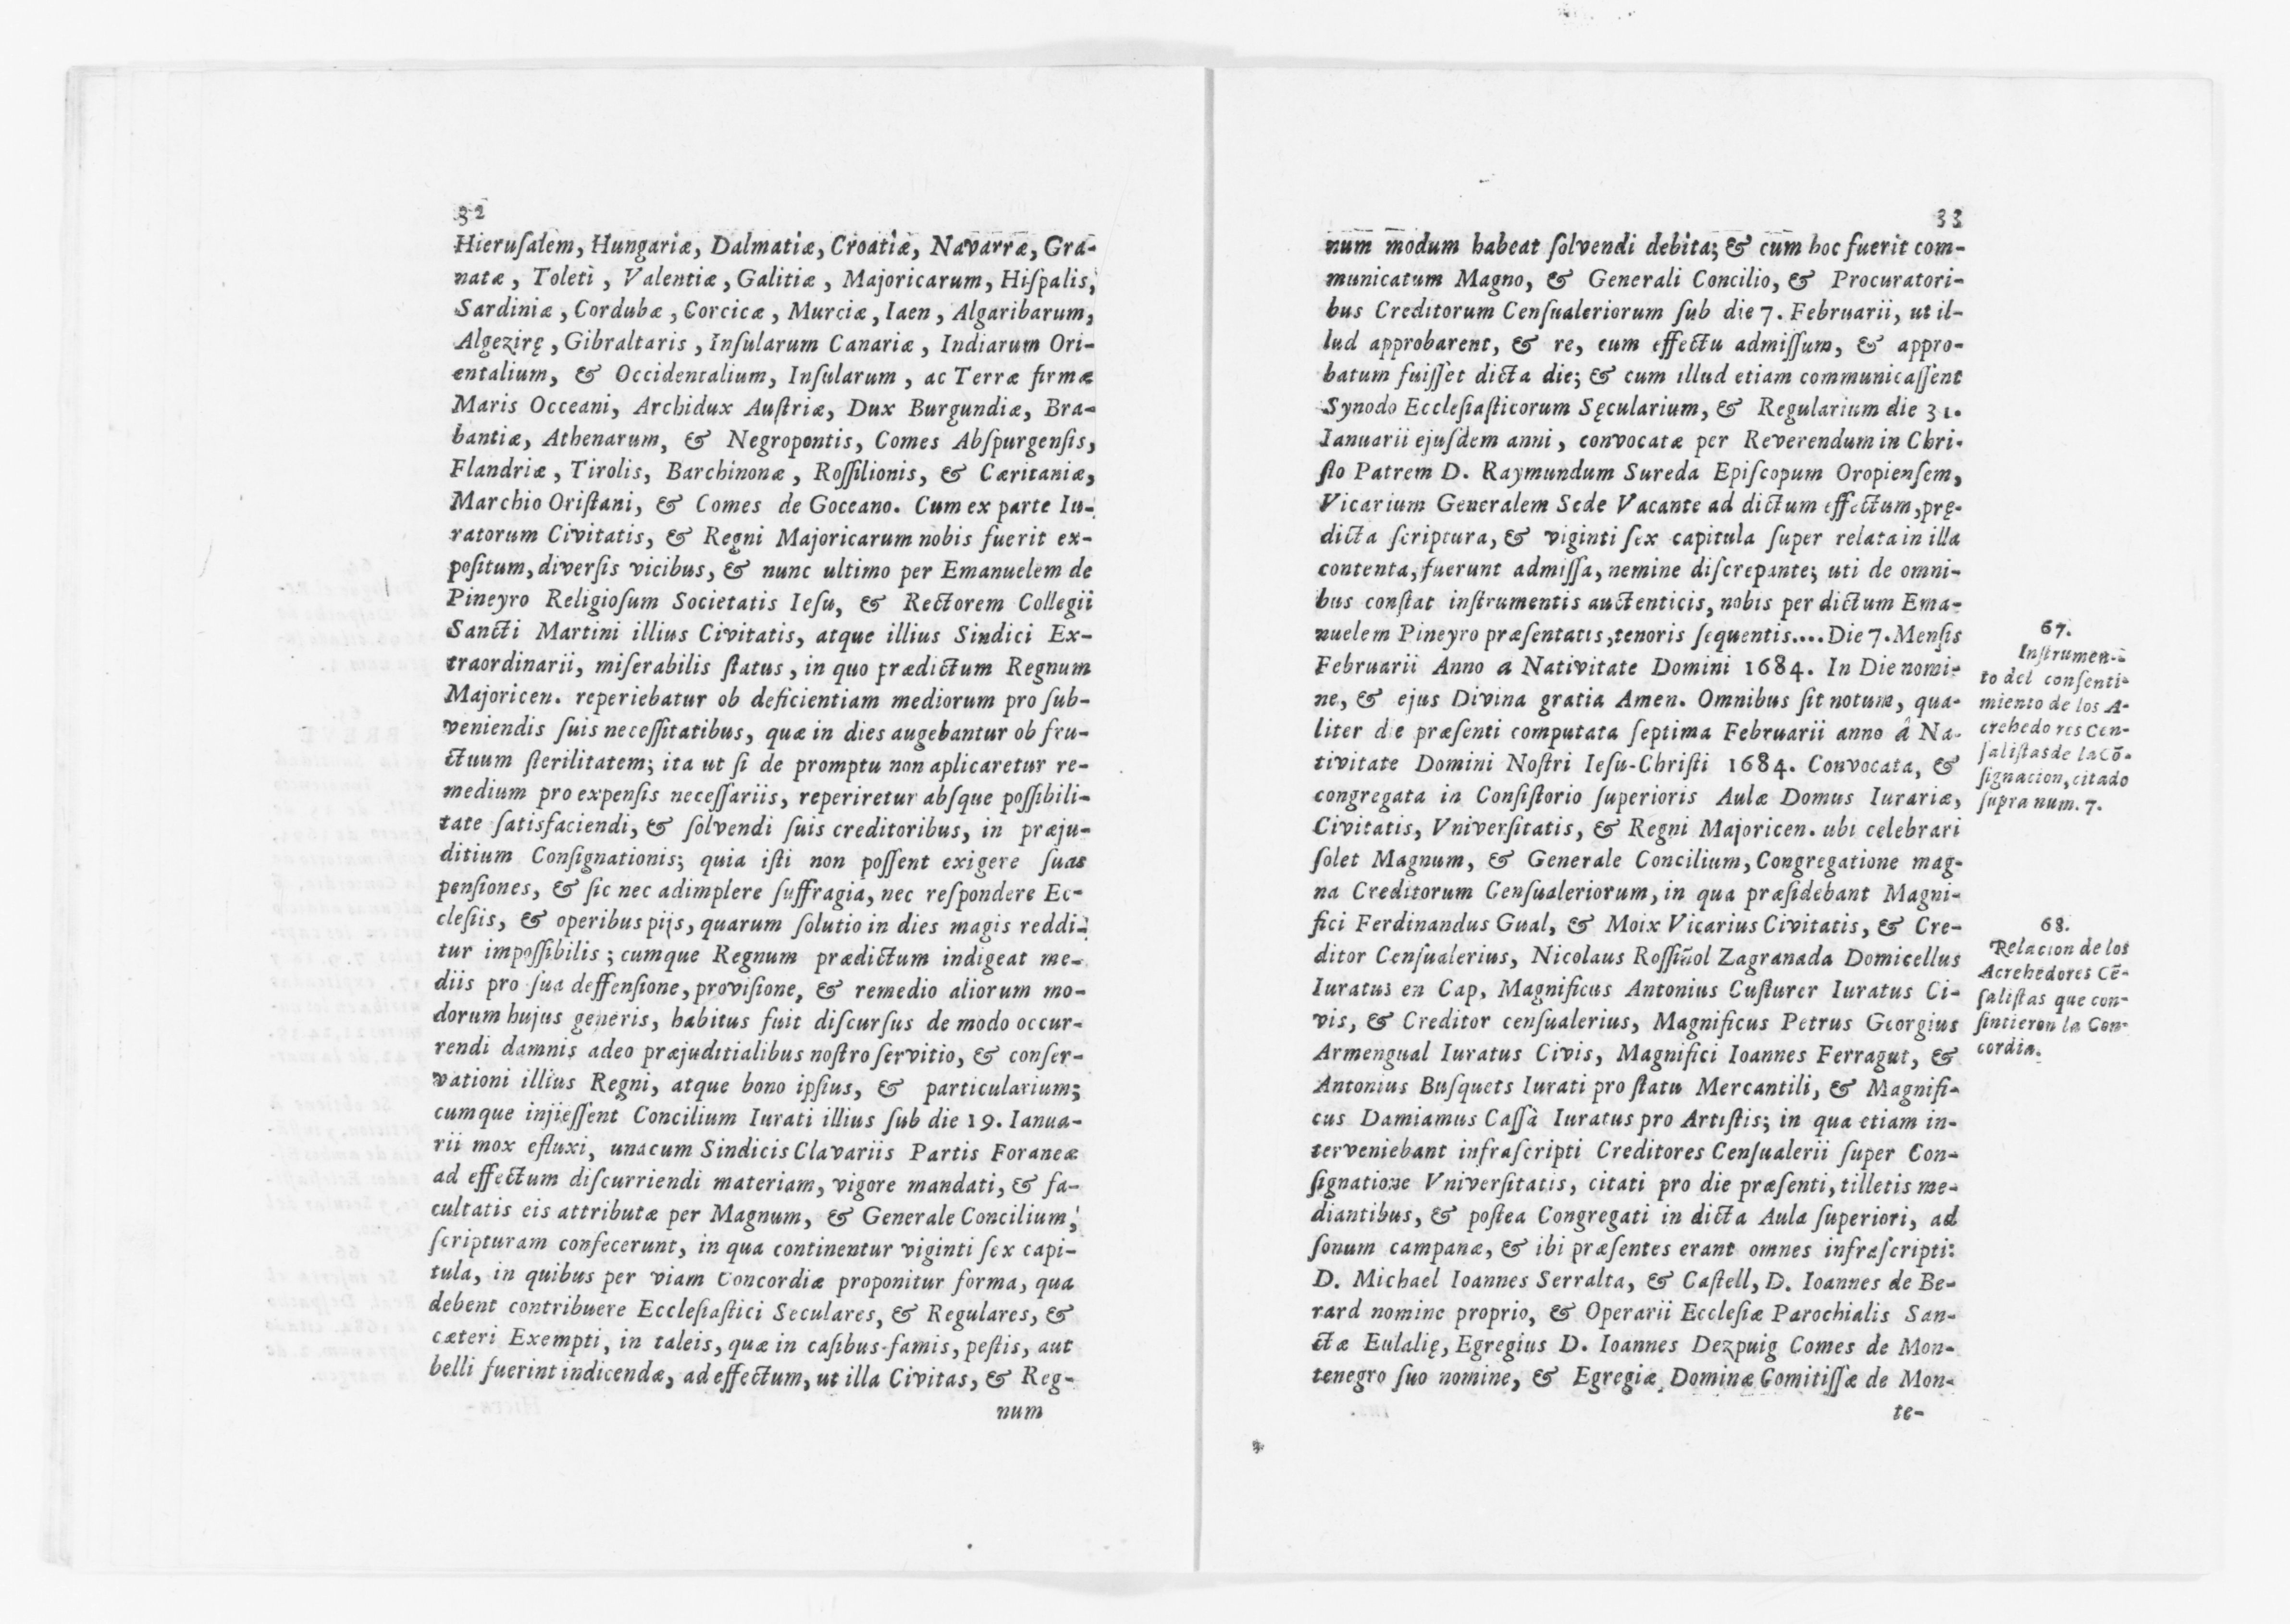 32
Hieruſalem, Hungariæ, Dalmatiæ, Croatiæ, Navarræ, Gra-
natæ, Toleti, Valentiæ, Galitiæ, Majoricarum, Hiſpalis,
Sardiniæ, Cordubæ, Corcicæ, Murciæ, Iaen, Algaribarum,
Algezirę, Gibraltaris, Inſularum Canariæ, Indiarum Ori-
entalium, & Occidentalium, Inſularum, ac Terræ firmæ
Maris Occeani, Archidux Auſtriæ, Dux Burgundiæ, Bra-
bantiæ, Athenarum, & Negropontis, Comes Abſpurgenſis,
Flandriæ, Tirolis, Barchinonæ, Roſſilionis, & Cæritaniæ,
Marchio Oriſtani, & Comes de Goceano. Cum ex parte Iu-
ratorum Civitatis, & Regni Majoricarum nobis fuerit ex-
poſitum, diverſis vicibus, & nunc ultimo per Emanuelem de
Pineyro Religioſum Societatis Ieſu, & Rectorem Collegii
Sancti Martini illius Civitatis, atque illius Sindici Ex-
traordinarii, miſerabilis ſtatus, in quo prædictum Regnum
Majoricen. reperiebatur ob deficientiam mediorum pro ſub-
veniendis ſuis neceſſitatibus, quæ in dies augebantur ob fru-
ctuum ſterilitatem; ita ut ſi de promptu non aplicaretur re-
medium pro expenſis neceſſariis, reperiretur abſque poſſibili-
tate ſatisfaciendi, & ſolvendi ſuis creditoribus, in præju-
ditium Conſignationis; quia iſti non poſſent exigere ſuas
penſiones, & ſic nec adimplere ſuffragia, nec reſpondere Ec-
cleſiis, & operibus pijs, quarum ſolutio in dies magis reddi-
tur impoſſibilis; cumque Regnum prædictum indigeat me-
diis pro ſua deffenſione, proviſione, & remedio aliorum mo-
dorum hujus generis, habitus fuit diſcurſus de modo occur-
rendi damnis adeo præjuditialibus noſtro ſervitio, & conſer-
vationi illius Regni, atque bono ipſius, & particularium;
cumque injieſſent Concilium Iurati illius ſub die 19. Ianua-
rii mox efluxi, unacum Sindicis Clavariis Partis Foraneæ
ad effectum diſcurriendi materiam, vigore mandati, & fa-
cultatis eis attributæ per Magnum, & Generale Concilium,
ſcripturam confecerunt, in qua continentur viginti ſex capi-
tula, in quibus per viam Concordiæ proponitur forma, qua
debent contribuere Eccleſiaſtici Seculares, & Regulares, &
cæteri Exempti, in taleis, quæ in caſibus famis, peſtis, aut
belli fuerint indicendæ, ad effectum, ut illa Civitas, & Reg-
num
33
num modum habeat ſolvendi debita; & cum hoc fuerit com-
municatum Magno, & Generali Concilio, & Procuratori-
bus Creditorum Cenſualeriorum ſub die 7. Februarii, ut il-
lud approbarent, & re, cum effectu admiſſum, & appro-
batum fuiſſet dicta die; & cum illud etiam communicaſſent
Synodo Eccleſiaſticorum Sęcularium, & Regularium die 31.
Ianuarii ejuſdem anni, convocatæ per Reverendum in Chri-
ſto Patrem D. Raymundum Sureda Epiſcopum Oropienſem,
Vicarium Generalem Sede Vacante ad dictum effectum, prę-
dicta ſcriptura, & viginti ſex capitula ſuper relata in illa
contenta, fuerunt admiſſa, nemine diſcrepante; uti de omni-
bus conſtat inſtrumentis auctenticis, nobis per dictum Ema-
nuelem Pineyro præſentatis, tenoris ſequentis.... Die 7. Menſis
Februarii Anno a Nativitate Domini 1684. In Die nomi-
ne, & ejus Divina gratia Amen. Omnibus ſit notum, qua-
liter die præſenti computata ſeptima Februarii anno â Na-
tivitate Domini Noſtri Ieſu-Chriſti 1684. Convocata, &
congregata in Conſiſtorio ſuperioris Aulæ Domus Iurariæ,
Civitatis, Vniverſitatis, & Regni Majoricen. ubi celebrari
ſolet Magnum, & Generale Concilium, Congregatione mag-
na Creditorum Cenſualeriorum, in qua præſidebant Magni-
fici Ferdinandus Gual, & Moix Vicarius Civitatis, & Cre-
ditor Cenſualerius, Nicolaus Roſſiñol Zagranada Domicellus
Iuratus en Cap, Magnificus Antonius Cuſturer Iuratus Ci-
vis, & Creditor cenſualerius, Magnificus Petrus Georgius
Armengual Iuratus Civis, Magnifici Ioannes Ferragut, &
Antonius Buſquets Iurati pro ſtatu Mercantili, & Magnifi-
cus Damiamus Caſſà Iuratus pro Artiſtis; in qua etiam in-
terveniebant infraſcripti Creditores Cenſualerii ſuper Con-
ſignatione Vniverſitatis, citati pro die præſenti, tilletis me-
diantibus, & poſtea Congregati in dicta Aula ſuperiori, ad
ſonum campanæ, & ibi præſentes erant omnes infraſcripti:
D. Michael Ioannes Serralta, & Caſtell, D. Ioannes de Be-
rard nomine proprio, & Operarii Eccleſiæ Parochialis San-
ctæ Eulalię, Egregius D. Ioannes Dezpuig Comes de Mon-
tenegro ſuo nomine, & Egregiæ Dominæ Comitiſſæ de Mon-
te-
67.
Inſtrumen-
to del conſenti-
miento de los A-
crehedores Cen-
ſaliſtas de la Cõ-
ſignacion, citado
ſupra num. 7.
68.
Relacion de los
Acrehedores Cẽ-
ſaliſtas que con-
ſintieron la Con-
cordia.